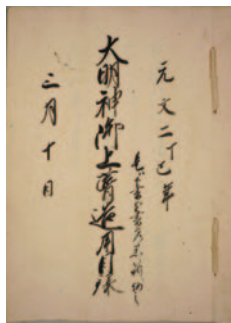 元文二丁巳年
大明神御上葺遣用目録
三月十日